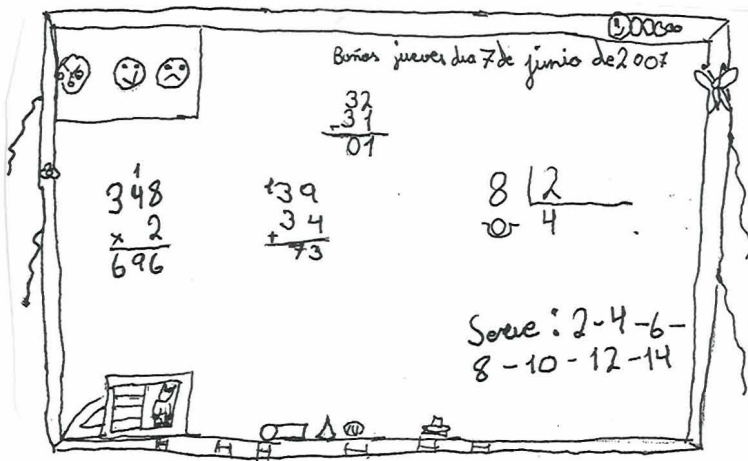 Bunos jueves dia 7 de junio de 2007
32
- 31
01
1
348
x 2
696
1
39
+ 34
73
8 | 2
0 4
Serie : 2 - 4 - 6 -
8 - 10 - 12 - 14